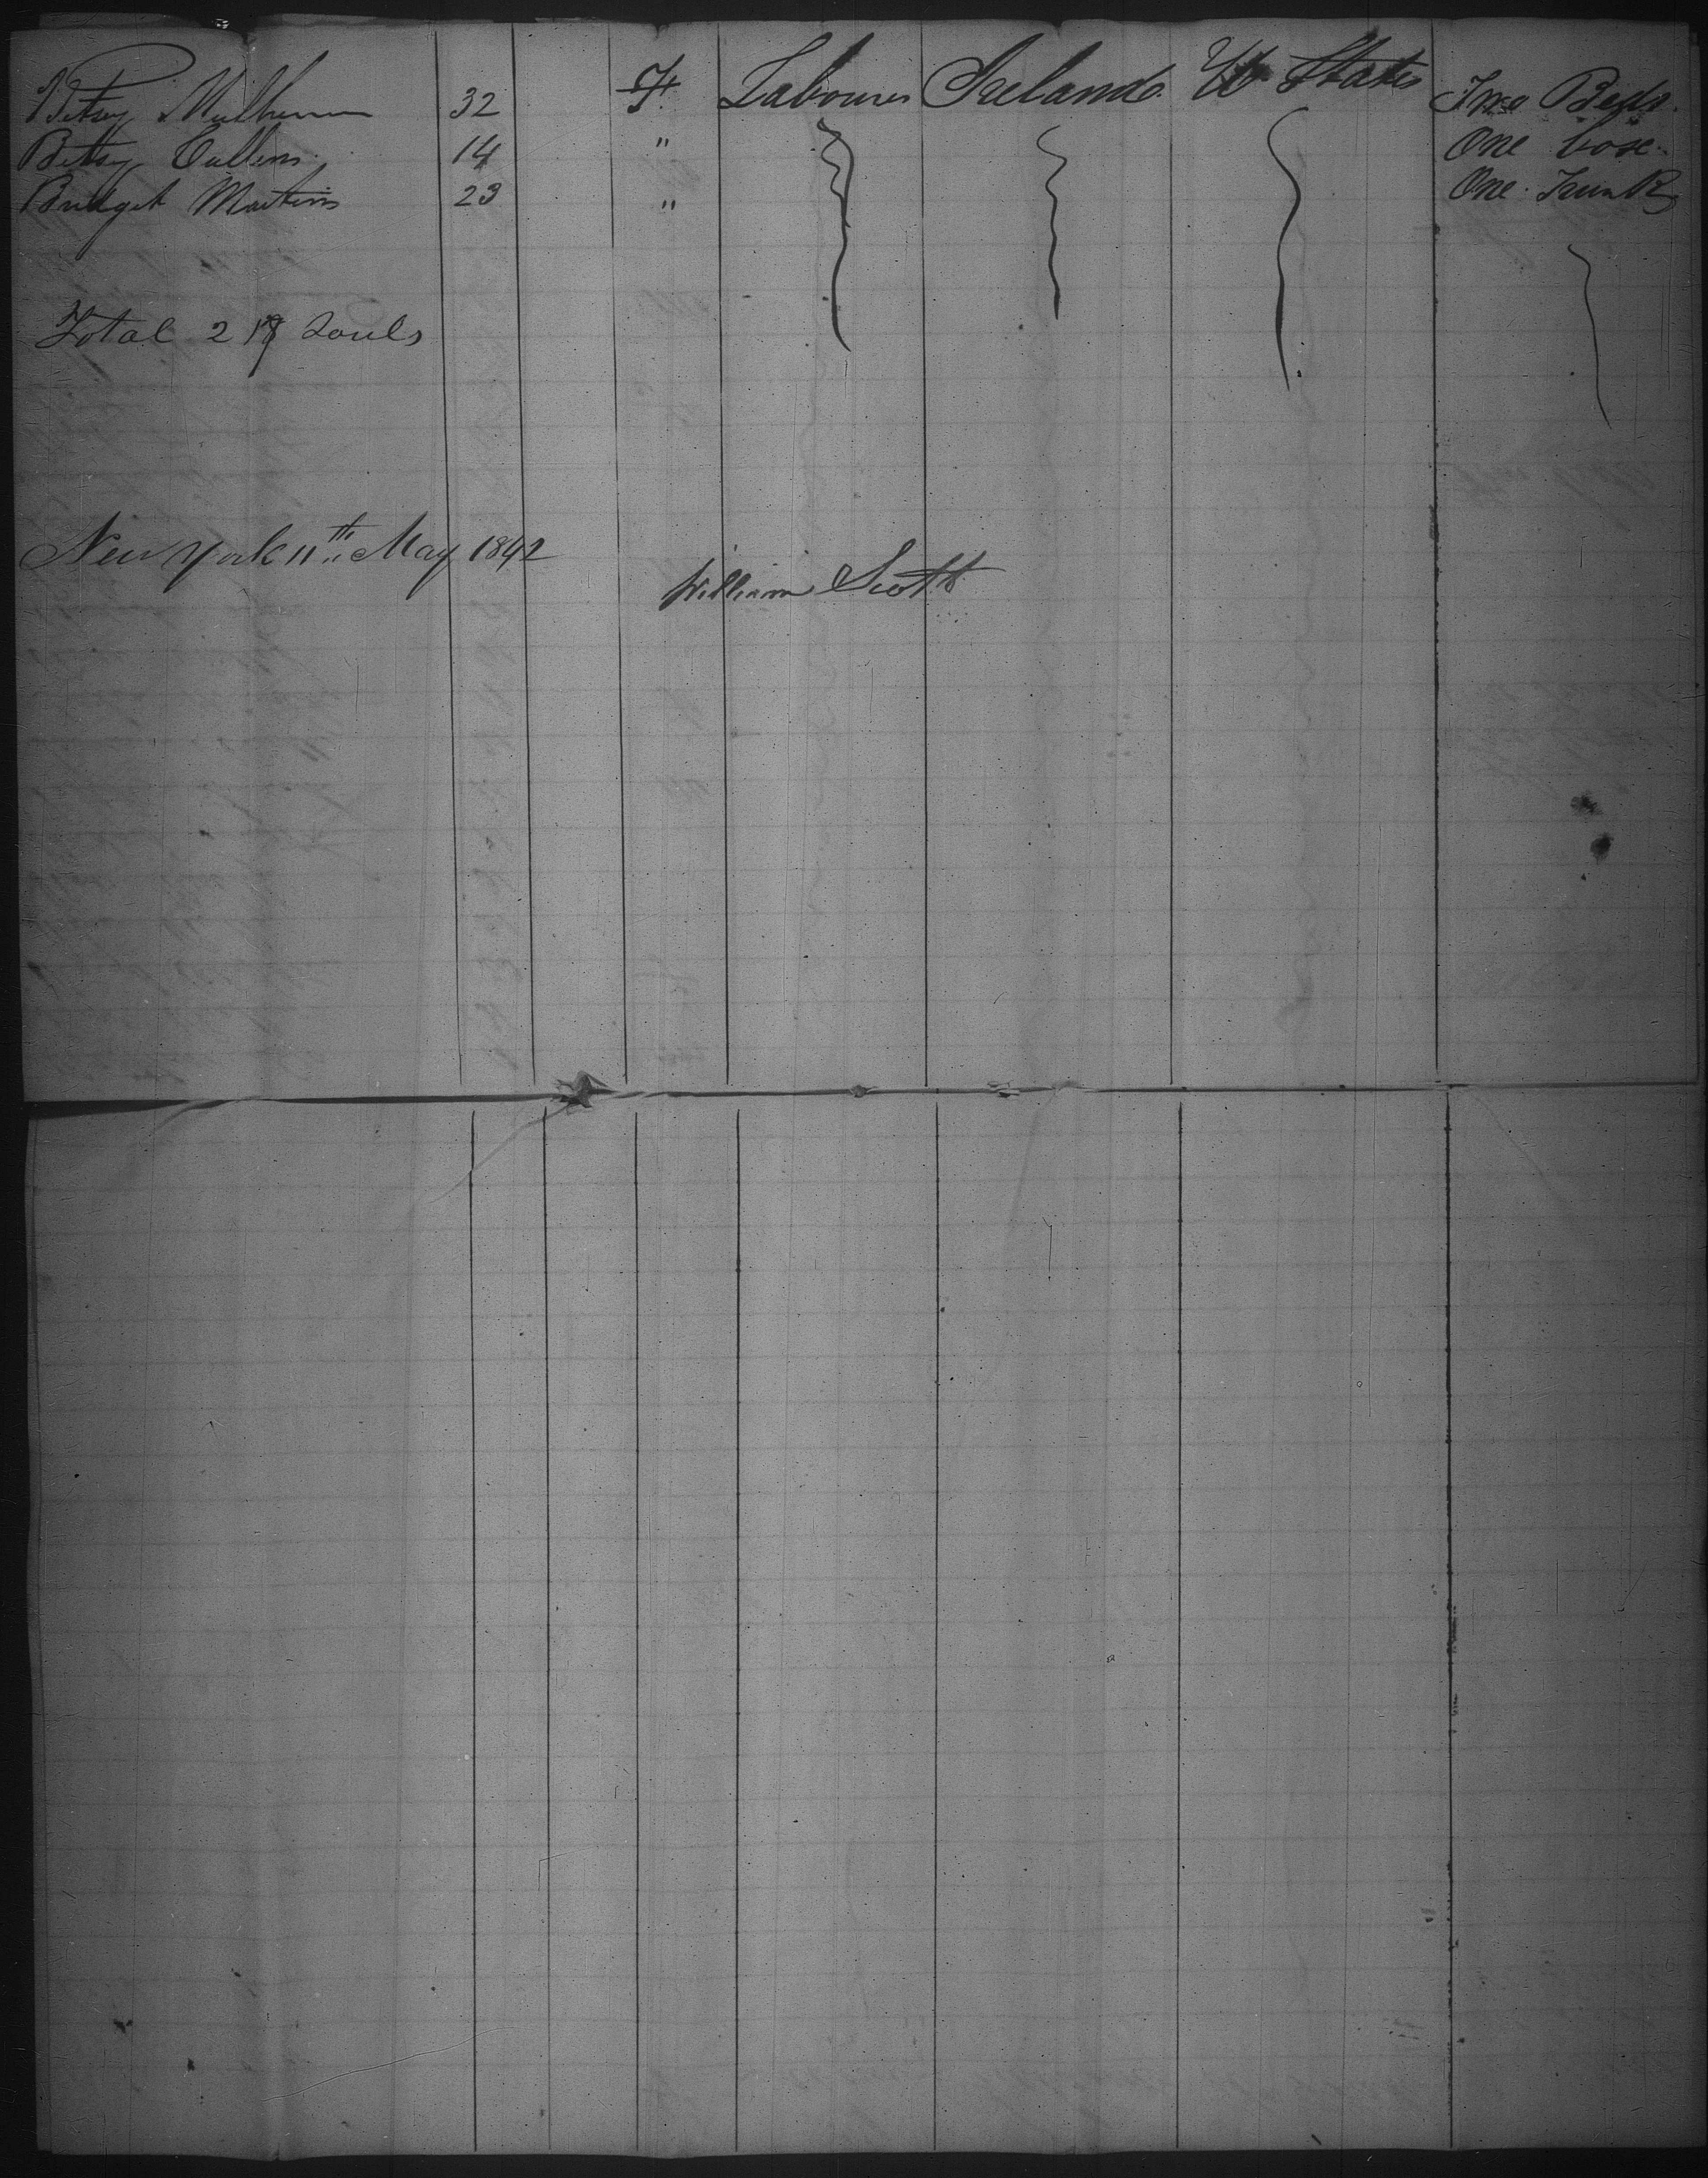 Betsy Mulhern 32 F. Labourers Ireland U States Two Beds.
Betsy Cullens 14 " One box
Bridget Martins 23 " One Trunk
Total 2 Souls
New York 11th May 1842
William Scott